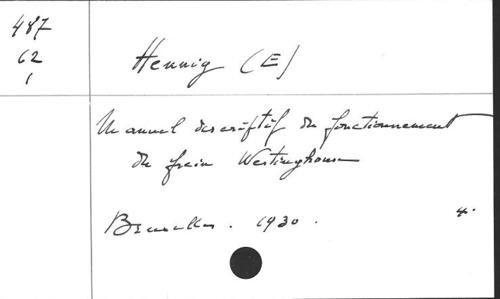 487
62
1
Hennig (E)
Manuel descriptif du fonctionnement
du frein Westinghouse
Bruxelles. 1930.
4.